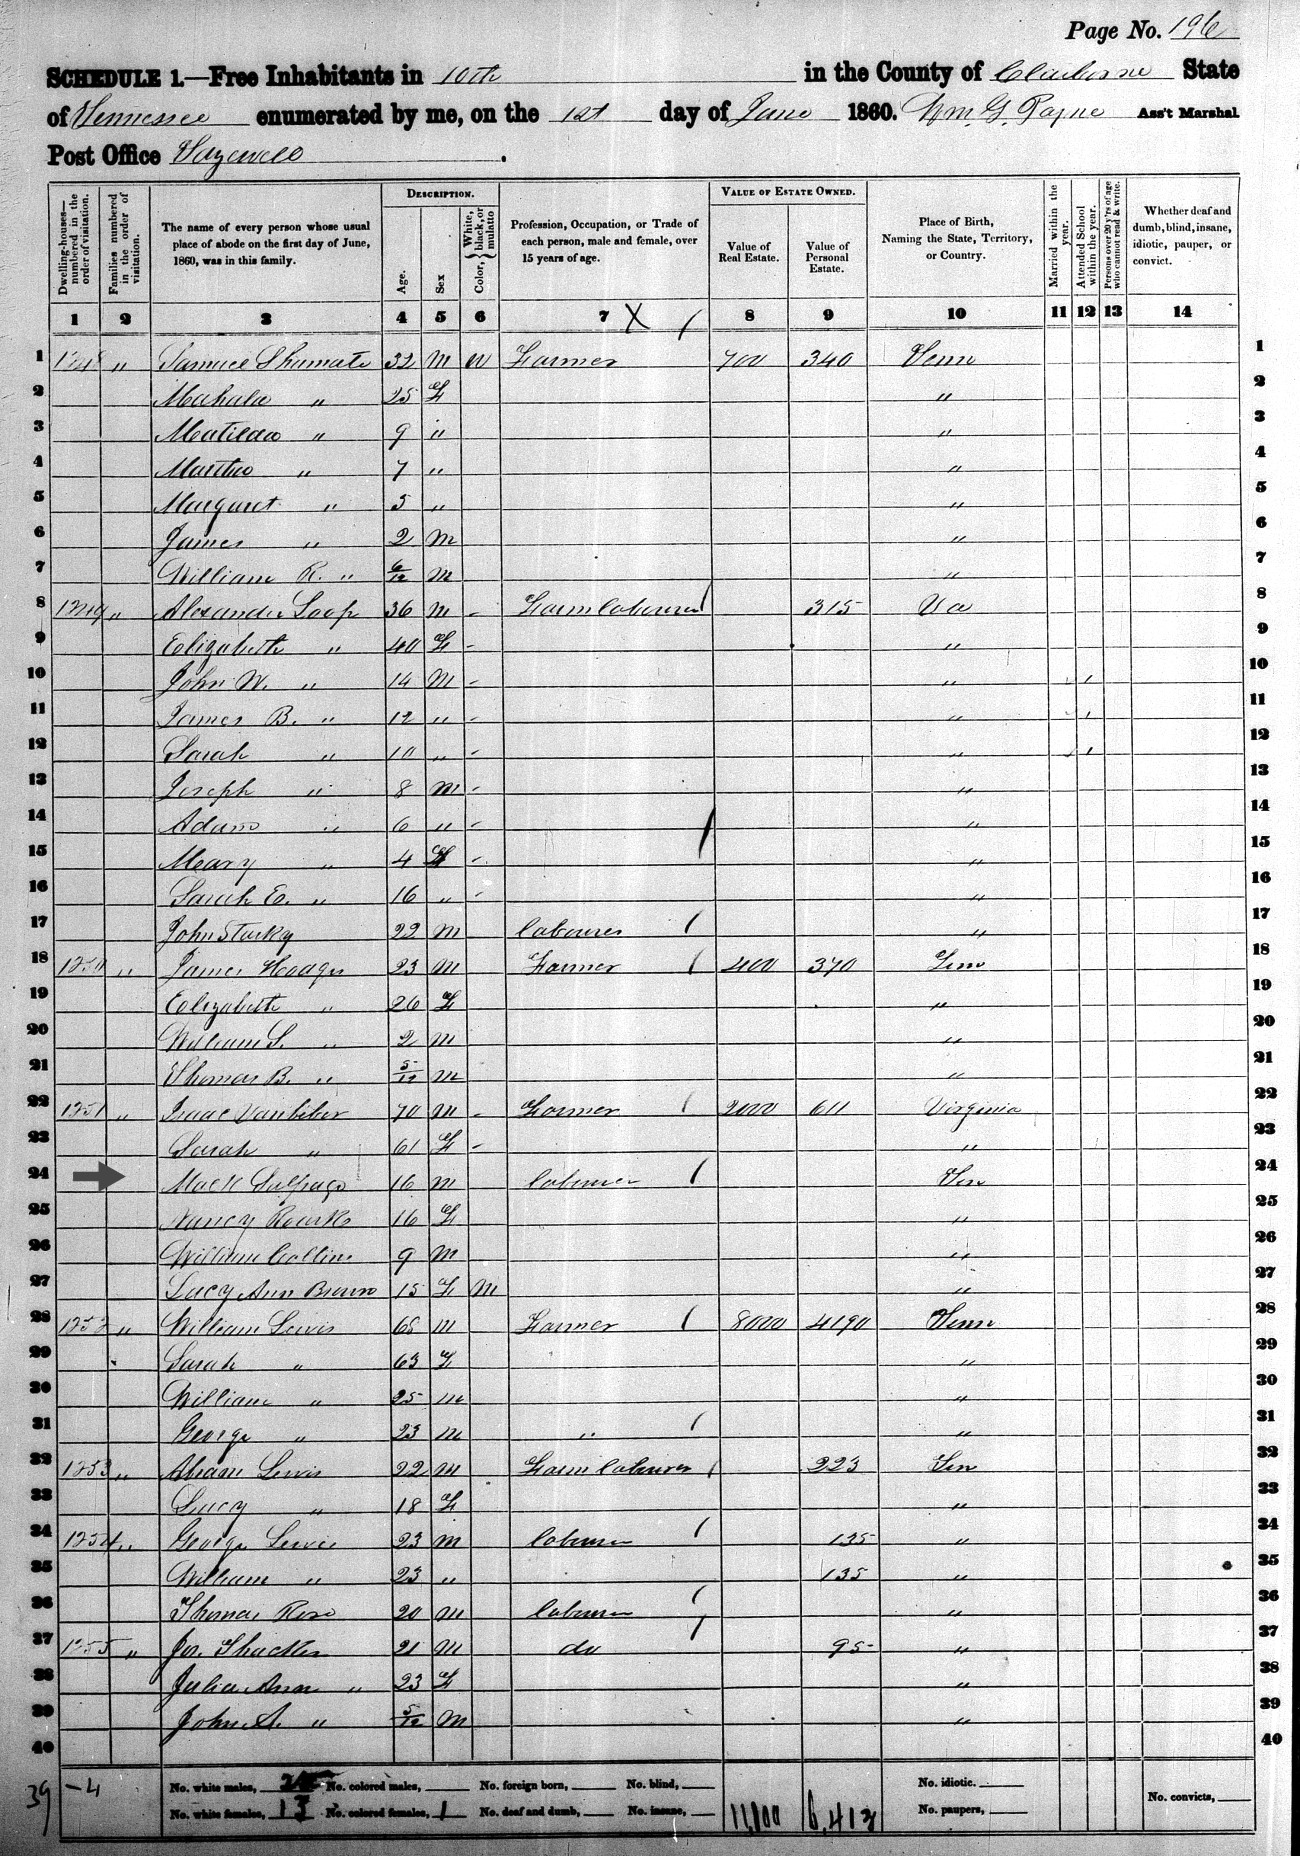 Page No. 196
SCHEDULE 1.—Free Inhabitants in 10th in the County of Claiborne State
of Tennessee enumerated by me, on the 1st day of June 1860. Wm. G. Payne Ass't Marshal
Post Office Tazewell .
Dwelling-houses—numbered in the order of visitation.
Families numbered in the order of visitation.
The name of every person whose usual place of abode on the first day of June, 1860, was in this family.
DESCRIPTION.
Age.
Sex
Color, { White, black, or mulatto
Profession, Occupation, or Trade of each person, male and female, over 15 years of age.
VALUE OF ESTATE OWNED.
Value of Real Estate.
Value of Personal Estate.
Place of Birth, Naming the State, Territory, or Country.
Married within the year.
Attended School within the year.
Persons over 20 y'rs of age who cannot read & write.
Whether deaf and dumb, blind, insane, idiotic, pauper, or convict.
1 2 3 4 5 6 7 X 8 9 10 11 12 13 14
1 1248 " Samuel Shumate 32 M W Farmer 700 340 Tenn 1
2 Mahala " 25 F " 2
3 Matilda " 9 " " 3
4 Martha " 7 " " 4
5 Margaret " 5 " " 5
6 James " 2 M " 6
7 William R. " 6/12 M " 7
8 1249 " Alexander Loop 36 M - Farm labourer 315 Va 8
9 Elizabeth " 40 F - " 9
10 John W. " 14 M - " ' 10
11 James B. " 12 " - " ' 11
12 Sarah " 10 " - " ' 12
13 Joseph " 8 M - " 13
14 Adam " 6 " - " 14
15 Meary " 4 F - " 15
16 Sarah E. " 16 " - " 16
17 John Starky 22 M labourer " 17
18 1250 " James Hodges 23 M Farmer 400 370 Tenn 18
19 Elizabeth " 26 F " 19
20 William S. " 2 M " 20
21 Thomas B. " 5/12 M " 21
22 1251 " Isaac Vanbeber 70 M - Farmer 2000 611 Virginia 22
23 Sarah " 61 F - " 23
24 Mack 16 M labourer Ten 24
25 Nancy Roark 16 F " 25
26 William Collins 9 M " 26
27 Lucy Ann Brown 15 F M " 27
28 1252 " William Lewis 65 M Farmer 8000 4190 Tenn 28
29 Sarah " 63 F " 29
30 William " 25 M " 30
31 George " 23 M " " 31
32 1253 " Abram Lewis 22 M Farm labourer 223 Ten 32
33 Lucy " 18 F " 33
34 1254 " George Lewis 23 M labourer 135 " 34
35 William " 23 " 135 " 35
36 Thomas Rose 20 M labourer " 36
37 1255 " Jos. 21 M do 95 " 37
38 Julia Ann " 23 F " 38
39 John A. " 5/12 M " 39
40 40
39 -4 No. white males, No. colored males, No. foreign born, No. blind, No. idiotic.
No. white females, 13 No. colored females, 1 No. deaf and dumb, No. insane, 11,100 6,413 No. paupers, No. convicts,